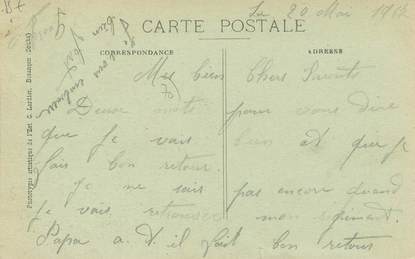 Le 20 Mai
CARTE POSTALE
CORRESPONDANCE
ADRESSE
Mes biens Chers Parents
Deux mots pour vous dire
que je vais bien et que je
fais bon retour
Je ne sais pas encore quand
Je vais retrouver mon regiment.
Papa a. t. il fait bon retour
Je vous
embrasse
bien
Phototypie artistique de l'Est, C. Lardier, Besançon (Doubs)